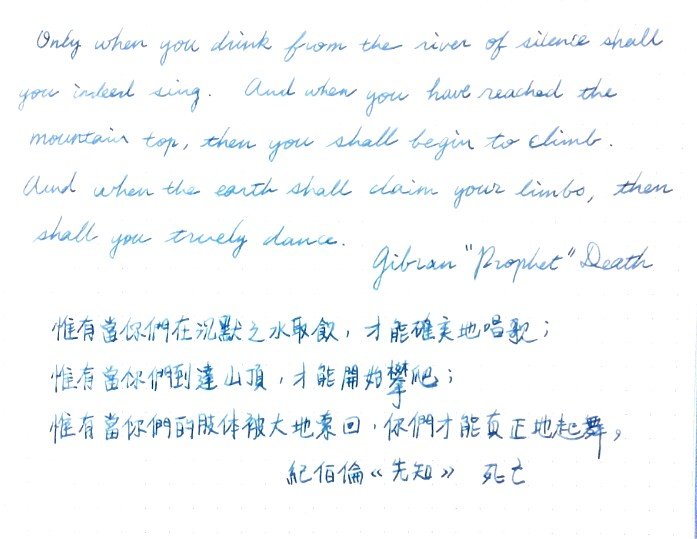 Only when you drink from the river of silence shall
you indeed sing. And when you have reached the
mountain top, then you shall begin to climb.
And when the earth shall claim your limbs, then
shall you truely dance.
Gibran "Prophet" Death
惟有當你們在沉默之水取飲，才能確实地唱歌；
惟有當你們到達山頂，才能開始攀爬；
惟有當你們的肢体被大地索回，你們才能真正地起舞。
紀伯倫《先知》 死亡